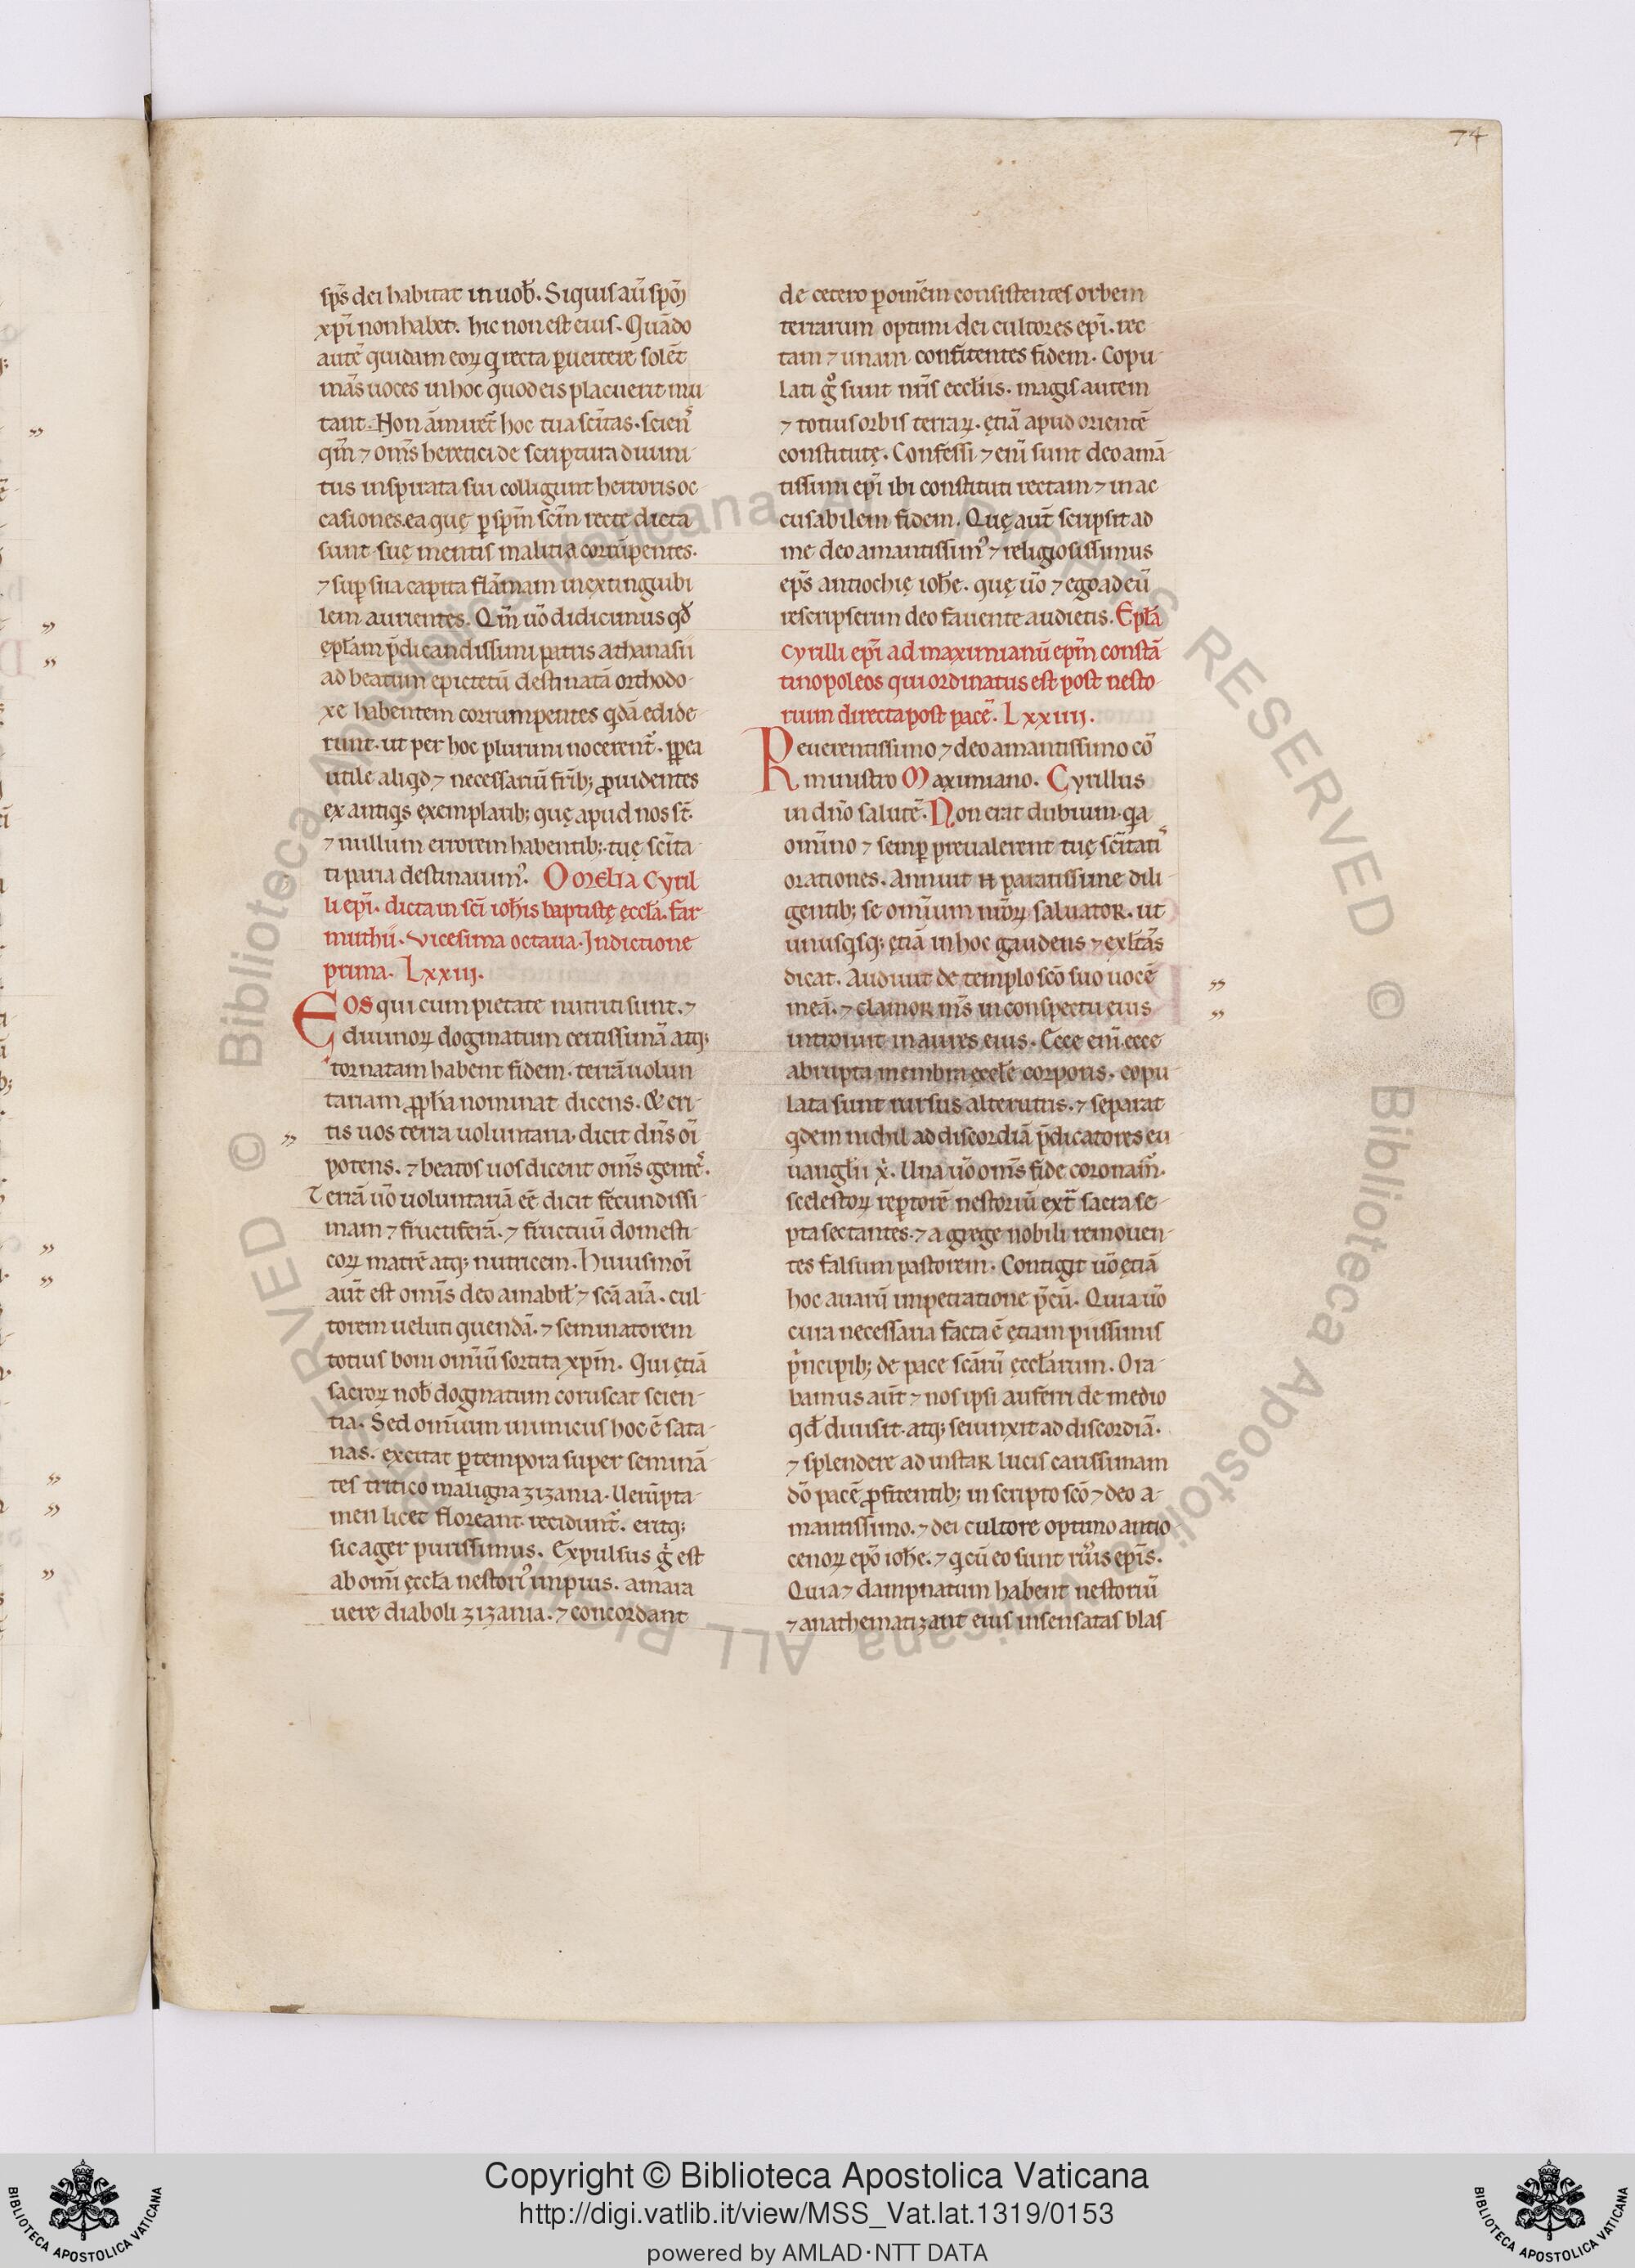 74
sp̅s dei habitat in uob̅. Siquis aū sp̅m̅
xp̅i non habet. hic non est eius. Quādo
autē quidam eoꝝ q̇ recta ꝑuertere solēt
mās uoces in hoc quod eis placuerit mu
tant. Non ām̄iret̄ hoc tua sc̅itas. scien̄
qm̅ ⁊ om̅s heretici de scriptura diuini
tus inspirata sui colligunt herroris oc
casiones. ea quę ꝑ sp̅m sc̅m recte dicta
sunt suę mentis malitia corrūpentes.
⁊ suꝑ sua capita flāmam inextinguibi
lem aurientes. Qm̅ uo̅ didicimus qd̅
ępl̅am p̅dicandissimi patris athanasii
ad beatum epictetū destinatā orthodo
xe habentem corrumpentes qdā edide
runt. ut per hoc plurimi nocerent̄. ꝓpea
utile aliqd ⁊ necessariū fr̅ib; ꝓuidentes
ex antiqis exemplarib; quę apud nos st̅.
⁊ nullum errorem habentib; tuę sc̅ita
ti paria destinauimꝰ. Omelia Cyril
li ep̅i. dicta in sc̅i ioh̅is baptistę ęccl̅a. far
muthii. vicesima octaua. Indictione
prima. Lxxiij.
Eos qui cum pietate nutriti sunt. ⁊
diuinoꝝ dogmatum certissimā atq;
tornatam habent fidem. terrā uolun
tariam ꝓph̅a nominat dicens. & eri
tis uos terra uoluntaria. dicit dn̅s oi̅
potens. ⁊ beatos uos dicent om̅s gentes̄.
Terrā uo̅ uoluntariā eē dicit fecundissi
mam ⁊ fructiferā. ⁊ fructuū domesti
coꝝ matrē atq; nutricem. Huiusmoi̅
aūt est om̅is deo amabil̅ ⁊ sc̅a ai̅a. cul
torem ueluti quendā. ⁊ seminatorem
totius boni omniū sortita xp̅m. Qui ętiā
sacroꝝ nob̅ dogmatum coruscat scien
tia. Sed omnium inimicus hoc ē sata
nas. excitat ꝑ tempora super seminā
tes tritico maligna zizania. Uerūpta
men licet floreant recidunt̄. eritq;
sic ager purissimus. Expulsus g̊ est
ab omi̅ ęccl̅a nestoriꝰ impius. amara
uere diaboli zizania. ⁊ concordant
de cetero ꝑ omēm consistentes orbem
terrarum optimi dei cultores ep̅i. rec
tam ⁊ unam confitentes fidem. Copu
lati g̊ sunt nr̅is eccl̅iis. magis autem
⁊ totius orbis terraꝝ. ętiā apud orientē
constitutę. Confessi ⁊ eni̅ sunt deo amā
tissimi ep̅i ibi constituti rectam ⁊ inac
cusabilem fidem. Quę aut̅ scripsit ad
me deo amantissimꝰ ⁊ religiosissimus
ep̅s antiochię ioh̅e. quę uo̅ ⁊ ego ad eū
rescripserim deo fauente audietis. Epl̅a
cyrilli ep̅i ad maximianū ep̅m constā
tinopoleos qui ordinatus est post nesto
rium directa post pacē. Lxxiiij.
Reuerentissimo ⁊ deo amantissimo cō
ministro Maximiano. Cyrillus
in dn̅o salutē. Non erat dubium. qa
omīno ⁊ semꝑ preualerent tuę sc̅itatis
orationes. Annuit N ꝑatissime dili
gentib; se omīum nr̅oꝝ saluator. ut
unusqsq; ętiā in hoc gaudens ⁊ exl̅tās
dicat. Audiuit de templo sc̅o suo uocē
meā. ⁊ clamor m̅s in conspectu eius
introiuit in aures eius. Ecce eni̅ ecce
abrupta membra ęccl̅ę corporis. copu
lata sunt rursus alterutris. ⁊ separat
qdem nichil ad discordiā p̅dicatores eu
uangl̅ii x̅. Una uo̅ om̅s fide coronam̄.
scelestoꝝ reptorē nestoriū ext̅ sacra se
pta sectantes. ⁊ a grege nobili remouen
tes falsum pastorem. Contigit uo̅ ętiā
hoc auarū impetratione p̅cū. Quia uo̅
cura necessaria facta ē ętiam piissimis
p̅ncipib; de pace scārū ęccl̅arum. Ora
bamus aut̅ ⁊ nos ipsi auferri de medio
qd̅ diuisit. atq; seiunxit ad discordiā.
⁊ splendere ad instar lucis carissimam
dō pacē ꝓfitentib; in scripto sc̅o ⁊ deo a
mantissimo. ⁊ dei cultore optimo antio
cenoꝝ ep̅o ioh̅e. ⁊ q̇ cū eo sunt ep̅is.
Quia ⁊ dampnatum habent nestoriū
⁊ anathematizant eius insensatas blas
Copyright © Biblioteca Apostolica Vaticana
http://digi.vatlib.it/view/MSS_Vat.lat.1319/0153
powered by AMLAD·NTT DATA
BIBLIOTECA APOSTOLICA VATICANA
BIBLIOTECA APOSTOLICA VATICANA
© Biblioteca Apostolica Vaticana ALL RIGHTS RESERVED © Biblioteca Apostolica Vaticana ALL RIGHTS RESERVED